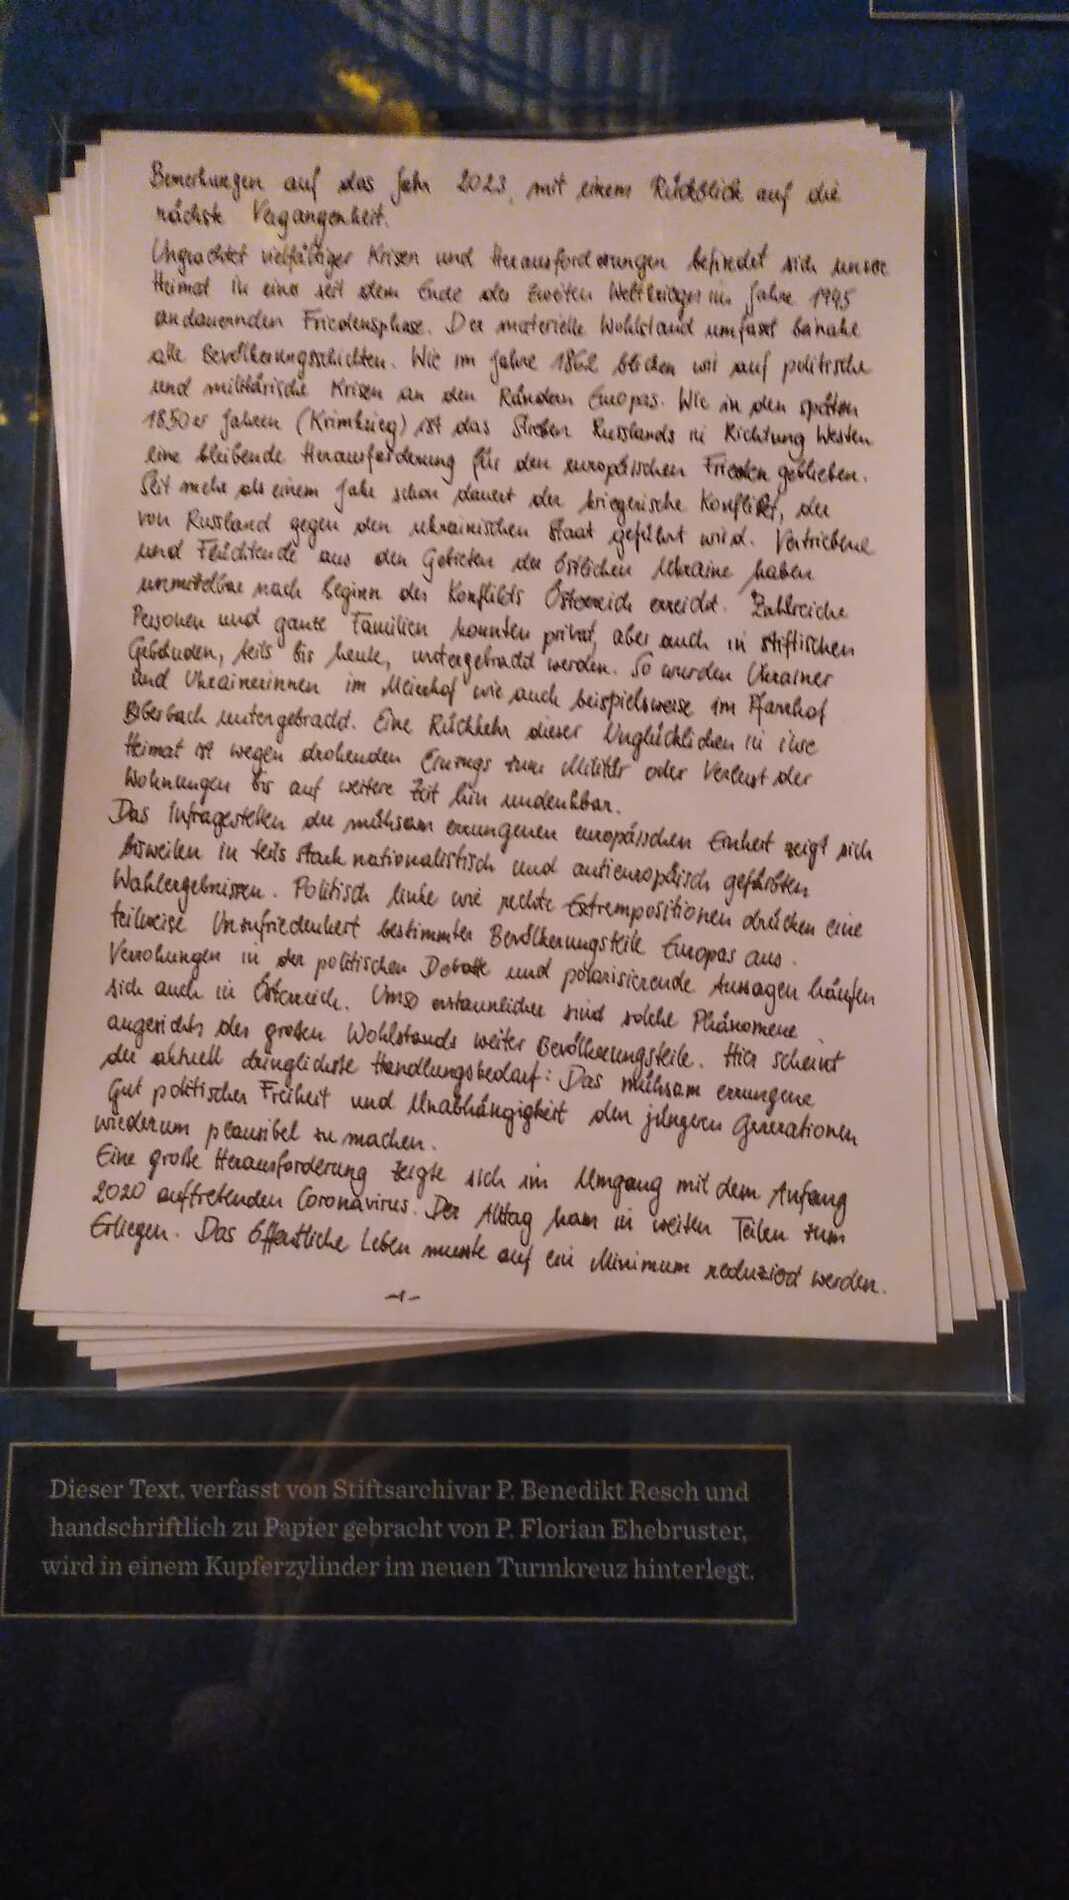 Bemerkungen auf das Jahr 2023, mit einem Rückblick auf die
nächste Vergangenheit.
Ungeachtet vielfältiger Krisen und Herausforderungen befindet sich unsere
Heimat in einer seit dem Ende des Zweiten Weltkrieges im Jahre 1945
andauernden Friedensphase. Der materielle Wohlstand umfasst beinahe
alle Bevölkerungsschichten. Wie im Jahre 1862 blicken wir auf politische
und militärische Krisen an den Rändern Europas. Wie in den späten
1850er Jahren (Krimkrieg) ist das Streben Russlands in Richtung Westen
eine bleibende Herausforderung für den europäischen Frieden geblieben.
Seit mehr als einem Jahr schon dauert der kriegerische Konflikt, der
von Russland gegen den ukrainischen Staat geführt wird. Vertriebene
und Flüchtende aus den Gebieten der östlichen Ukraine haben
unmittelbar nach Beginn des Konflikts Österreich erreicht. Zahlreiche
Personen und ganze Familien konnten privat, aber auch in stiftischen
Gebäuden, teils bis heute, untergebracht werden. So wurden Ukrainer
und Ukrainerinnen im Meierhof wie auch beispielsweise im Pfarrhof
Biberbach untergebracht. Eine Rückkehr dieser Unglücklichen in ihre
Heimat ist wegen drohenden Einzugs zum Militär oder Verlust der
Wohnungen bis auf weitere Zeit hin undenkbar.
Das Infragestellen der mühsam errungenen europäischen Einheit zeigt sich
bisweilen in teils stark nationalistisch und antieuropäisch gefärbten
Wahlergebnissen. Politisch linke wie rechte Extrempositionen drücken eine
teilweise Unzufriedenheit bestimmter Bevölkerungsteile Europas aus.
Verrohungen in der politischen Debatte und polarisierende Aussagen häufen
sich auch in Österreich. Umso erstaunlicher sind solche Phänomene
angesichts des großen Wohlstands weiter Bevölkerungsteile. Hier scheint
der aktuell dringlichste Handlungsbedarf: Das mühsam errungene
Gut politischer Freiheit und Unabhängigkeit den jüngeren Generationen
wiederum plausibel zu machen.
Eine große Herausforderung zeigte sich im Umgang mit dem Anfang
2020 auftretenden Coronavirus. Der Alltag kam in weiten Teilen zum
Erliegen. Das öffentliche Leben musste auf ein Minimum reduziert werden.
-1-
Dieser Text, verfasst von Stiftsarchivar P. Benedikt Resch und
handschriftlich zu Papier gebracht von P. Florian Ehebruster,
wird in einem Kupferzylinder im neuen Turmkreuz hinterlegt.